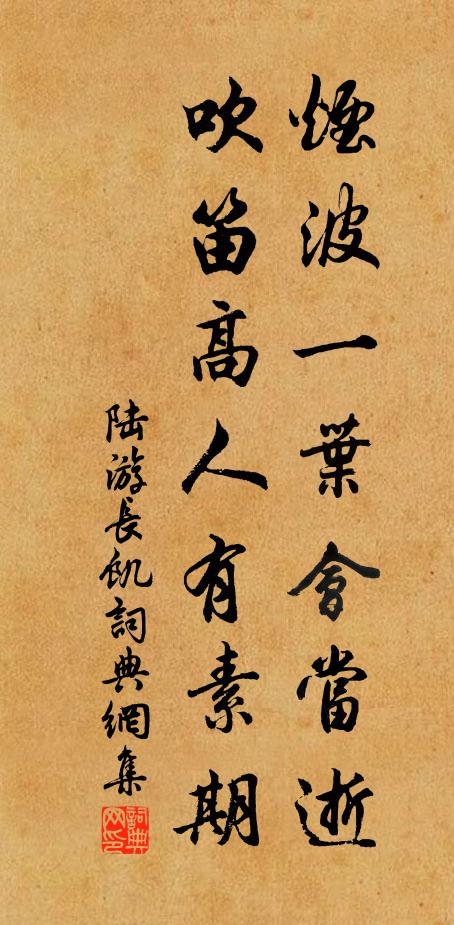 煙波一葉會當逝
吹笛高人有素期
陆游長飢詞典網集
詞典網印